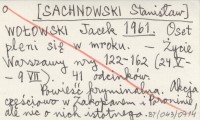 [SACHNOWSKI Stanisław]
WOŁOWSKI Jacek 1961. Oset
pleni się w mroku. - Życie
Warszawy nry 122-162 (24.V-
- 9 VII). 41 odcinków.
Powieść kryminalna. Akcja
częściowo w Zakopanem i Poroninie,
ale nic o nich istotnego. 31/063/0914